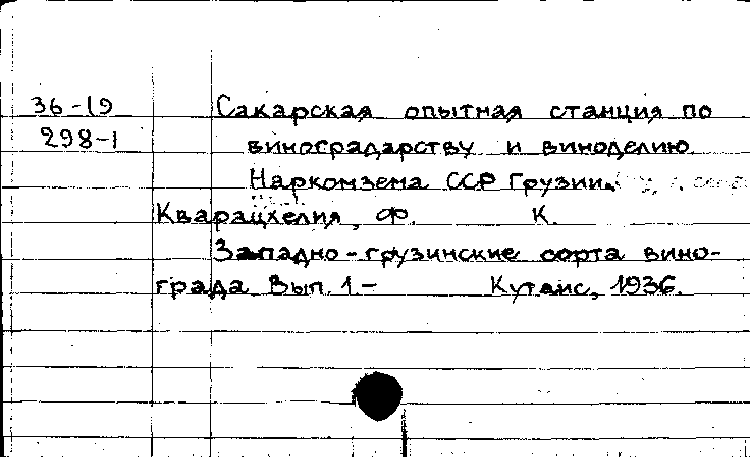 36-19 Сакарская опытная станция по
298-1 виноградарству и виноделию
Наркомзема ССР Грузии.
Кварацхелия, Ф. К.
Западно-грузинские сорта вино-
града. Вып. 1.- Кутаис, 1936.